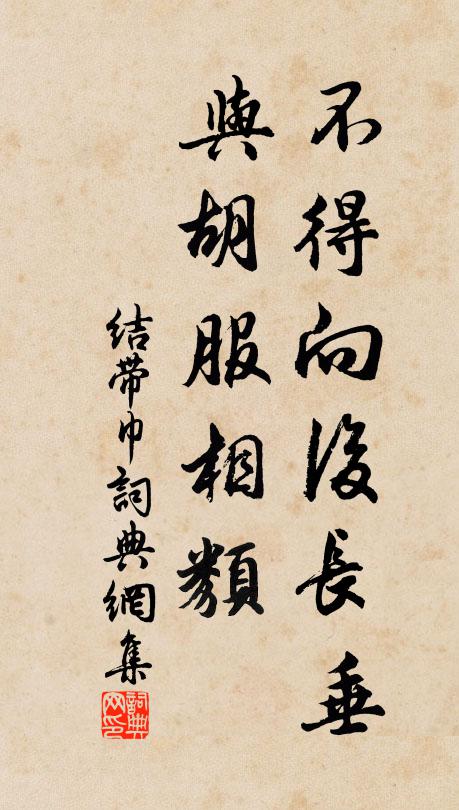 不得向後長垂
與胡服相類
结带巾詞典網集
詞典网印